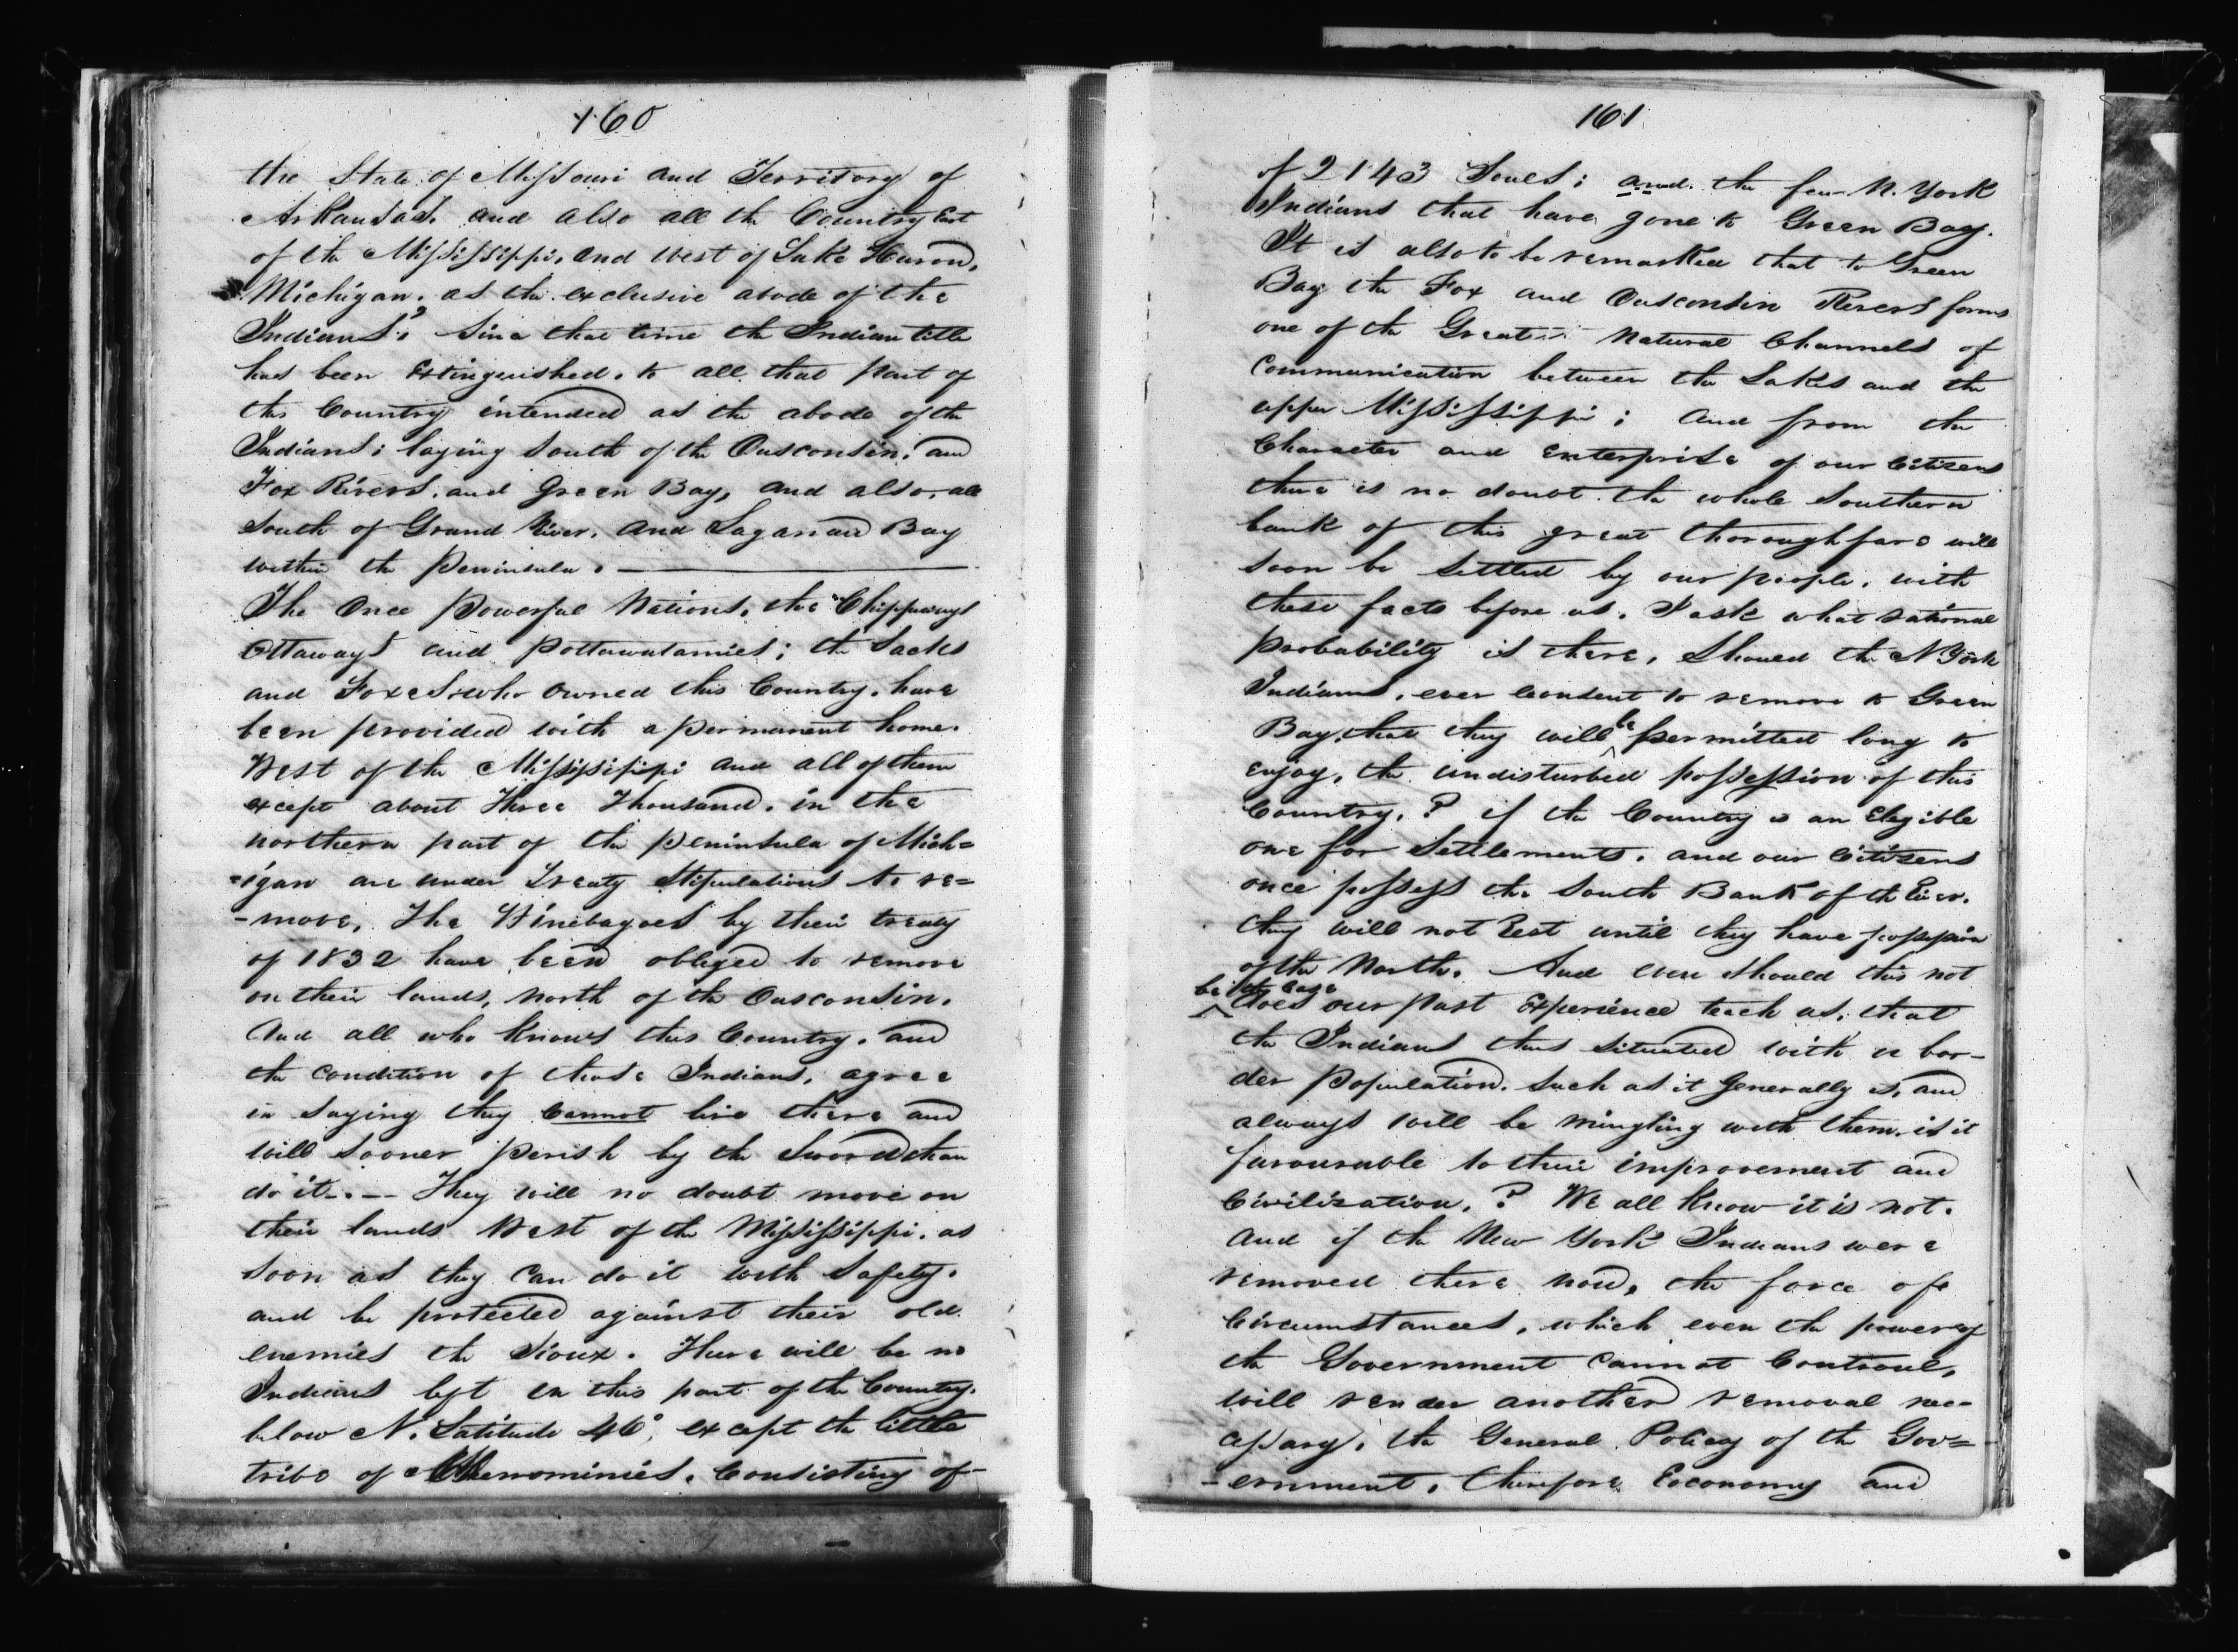 160
the State of Missouri and Territory of
Arkansas, and also all the Country East
of the Mississippi, and West of Lake Huron,
Michigan, as the exclusive abode of the
Indians", Since that time the Indian title
has been Extinguished, to all that part of
this Country intended as the abode of the
Indians; laying South of the Ousconsin, and
Fox Rivers, and Green Bay, and also, all
South of Grand River, and Saganaw Bay
within the Peninsula. —
The Once Powerful Nations, the Chippaways
Ottaways and Pottawatamies; the Sacks
and Foxes who owned this Country, have
been provided with a permanent home.
West of the Mississippi and all of them
except about Three Thousand, in the
northern part of the peninsula of Mich=
=igan are under Treaty Stipulations to re=
-move, The Winebagoes by their treaty
of 1832 have been obliged to remove
on their lands, North of the Ousconsin.
And all who knows this Country, and
the condition of those Indians, agree
in saying they cannot live there and
will sooner perish by the Sword than
do it. — They will no doubt move on
their lands West of the Mississippi, as
soon as they can do it with Safety.
and be protected against their old
enemies the Sioux. There will be no
Indians left in this part of the Country.
below N. Latitude 46°, except the little
tribe of Menominies, Consisting of
161
of 2143 Souls; and the few N. York
Indians that have gone to Green Bay.
It is also to be remarked that to Green
Bay the Fox and Ousconsin Rivers forms
one of the Great Natural Channels of
Communication between the Lakes and the
upper Mississippi; And from the
Character and enterprise of our Citizens
there is no doubt the whole Southern
bank of this great thoroughfare will
soon be Settled by our people, with
these facts before us, I ask what rational
probability is there, Should the N York
Indians, ever consent to remove to Green
Bay, that they will be permitted long to
enjoy, the undisturbed possession of this
Country, ? if the Country is an Elegible
one for Settlements, and our Citizens
once possess the South Bank of the River,
they will not Rest until they have possession
of the North. And even should this not
be the case does our past Experience teach us, that
the Indians thus situated with a bor-
der population, Such as it Generally is, and
always will be mingling with them, is it
favourable to their improvement and
Civilization, ? We all know it is not.
And if the New York Indians were
removed there now, the force of
Circumstances, which even the power of
the Government cannot Controul,
will render another removal nec-
essary, the General Policy of the Gov=
-ernment, therefore Eoconomy and